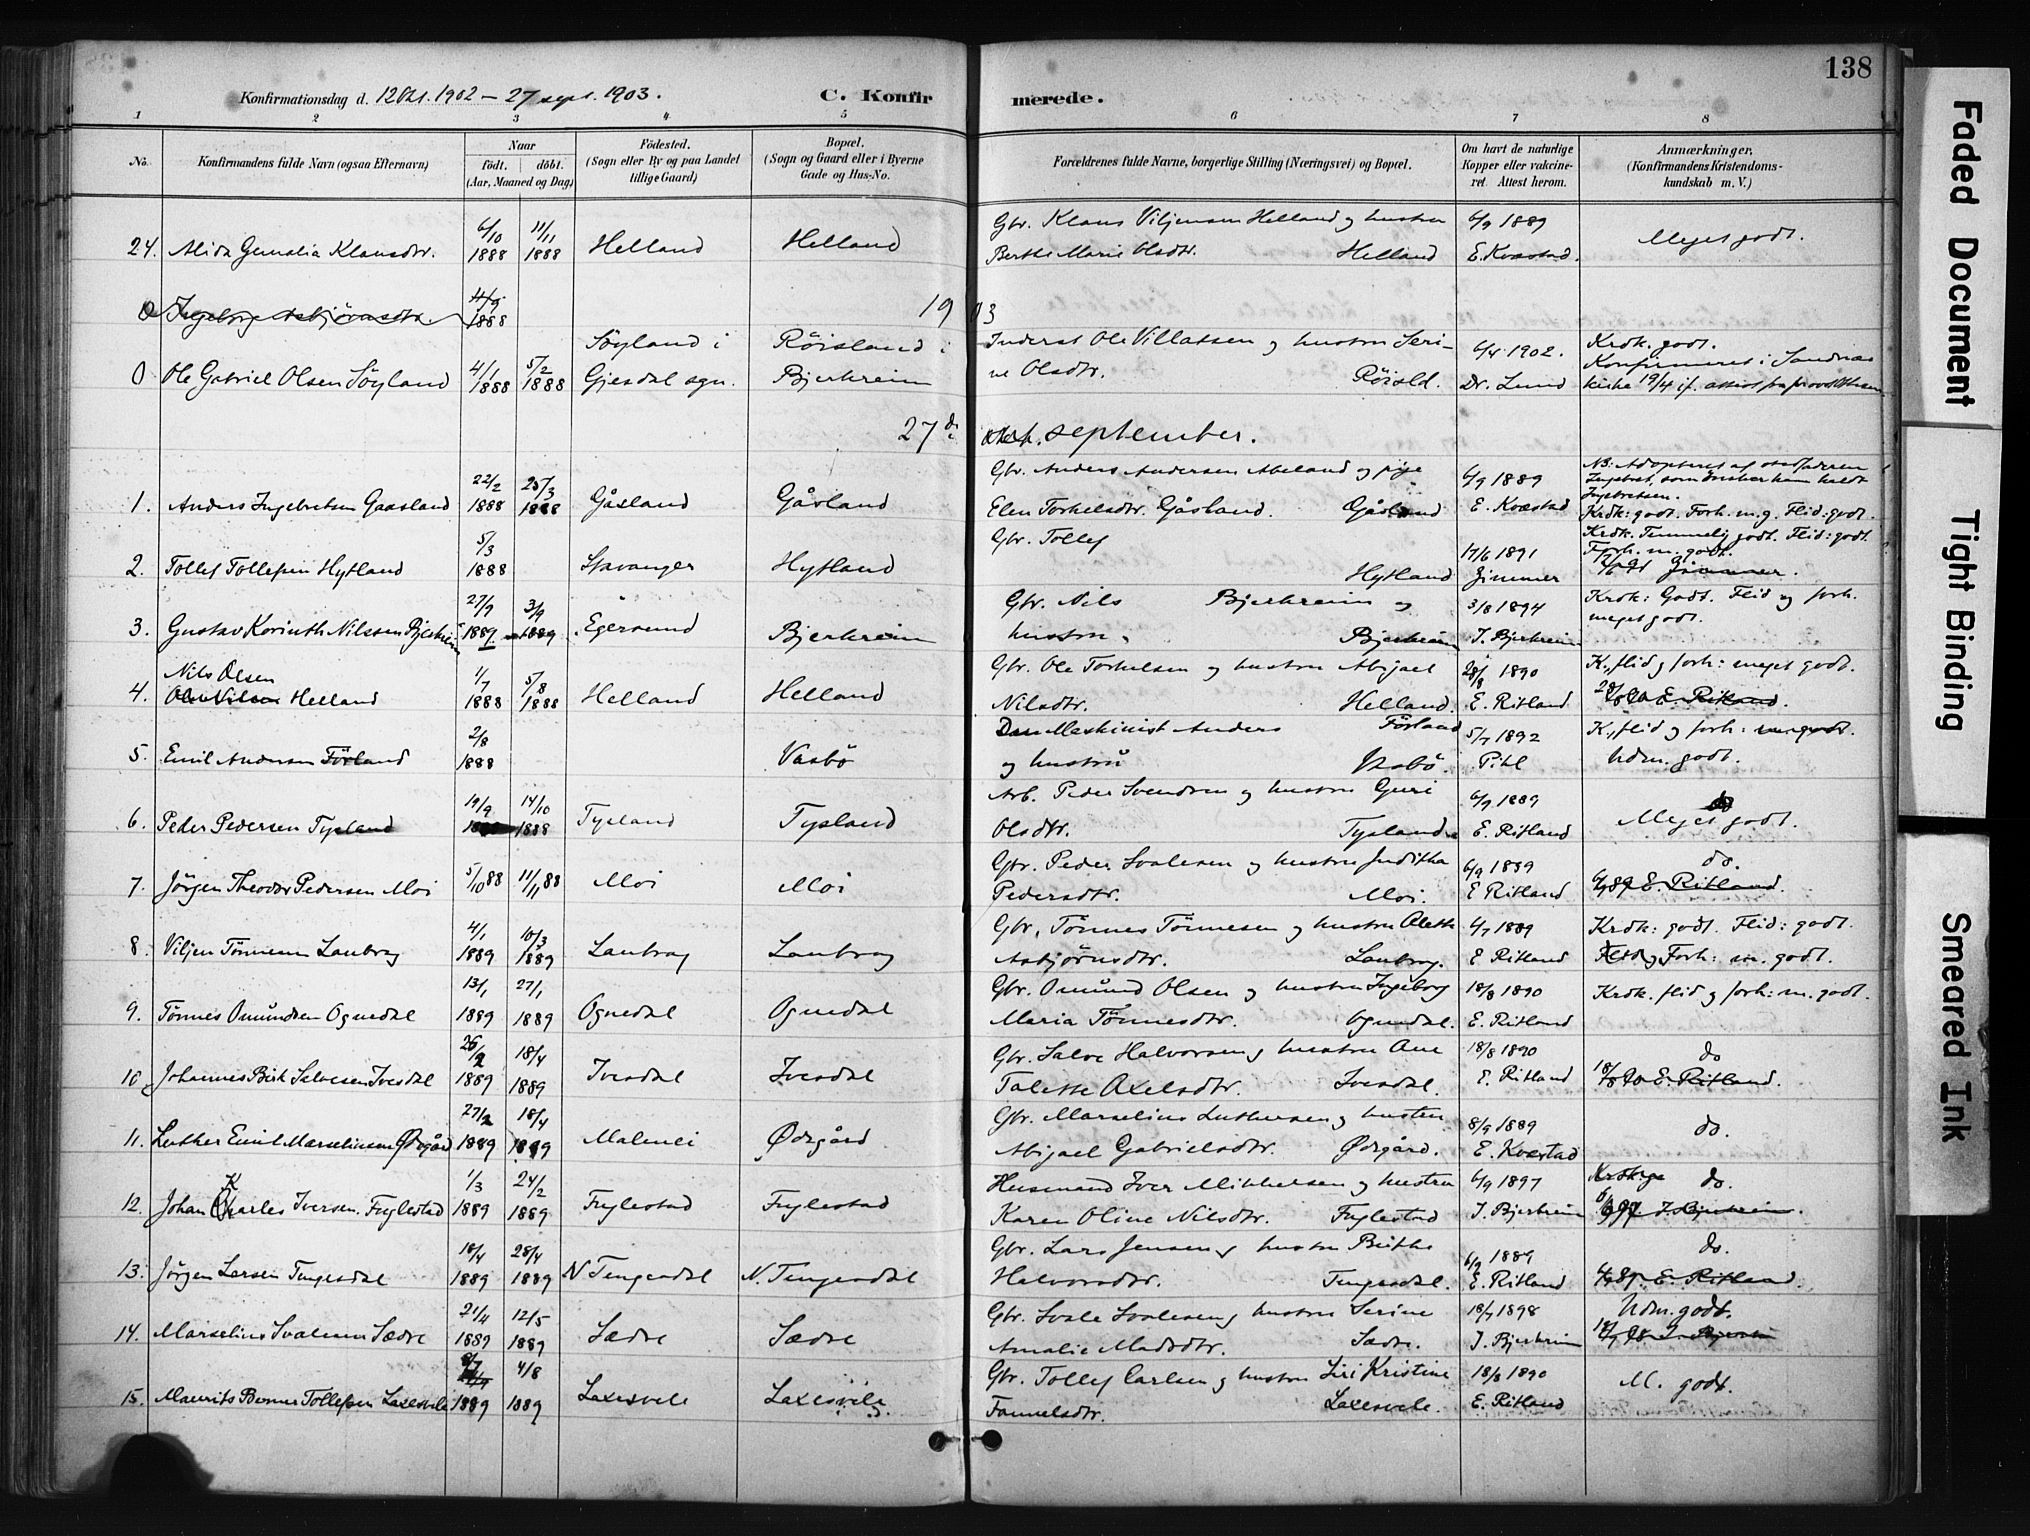 138
Konfirmationsdag d. 12 Okt. 1902 – 27 sept. 1903.
C. Konfirmerede.
1 2 3 4 5 6 7 8
No.
Konfirmandens fulde Navn (ogsaa Efternavn)
Naar
født. døbt.
(Aar, Maaned og Dag)
Fødested.
(Sogn eller By og paa Landet
tillige Gaard)
Bopæl.
(Sogn og Gaard eller i Byerne
Gade og Hus-No.
Forældrenes fulde Navne, borgerlige Stilling (Næringsvei) og Bopæl.
Om havt de naturlige
Kopper eller vakcine-
ret Attest herom.
Anmærkninger,
(Konfirmandens Kristendoms-
kundskab m. V.)
6/10 11/11 Gbr. Klaus Viljensen Helland og hustru 6/9 1889
24. Alida Gunalia Klausdtr. 1888 1888 Helland Helland Berthe Marie Olsdtr. Helland E. Kvæstad. Meget godt.
Ingeborg Asbjörnsdtr. 1888 1903
Söyland i Röisland i Inderst Ole Villatsen og hustru Seri- 6/4 1902. Krdk. godt.
Konfirmeret i Sandnæs
0 Ole Gabriel Olsen Söyland 4/1 1888 5/2 1888 Gjesdal sgn. Bjerkreim ne Olsdtr. Röisld. Dr. Lund kirke 19/4 if. attest fra provst
27de september.
22/2 25/3 Gbr. Anders Andersen Abeland og pige 6/9 1889 NB: Adopteret af stedfaderen
Ingebret, som ønsker ham kaldt
Ingebretsen.
1. Anders Ingebretsen Gaasland 1888 1888 Gåsland Gåsland Elen Torkelsdtr. Gåsland. Gåsland E. Kvæstad Krdk: godt. Forh. m. g. Flid: godt.
5/3 Gbr. Tollef 17/6 1891 Krdk. Temmelig godt. Flid: godt.
Forh. m. godt.
2. Tollef Tollefsen Hytland 1888 Stavanger Hytland Hytland Zimmer
27/7 3/9 Gbr. Nils Bjerkreim og 3/8 1894 Krdk: Godt. Flid og forh.
3. Gustav Korinth Nilssen Bjerkreim 1889 1889 Egersund Bjerkreim hustru Bjerkreim J. Bjerkreim meget godt.
Nils Olsen 1/7 5/8 Gbr. Ole Torkelsen og hustru Abigael 28/8 1890 K., flid og forh: meget godt.
4. Helland 1888 1888 Helland Helland Nilsdtr. Helland. E. Ritland 28/8 90 E. Ritland.
2/8 Maskinist Anders Förland 5/7 1892 K., flid og forh: m. godt.
5. Emil Andersen Förland 1888 Vasbö og hustru Vasbö. Pihl Udm. godt.
19/9 14/10 Arb. Peder Svendsen og hustru Guri 6/9 1889
6. Peder Pedersen Tysland 1888 Tysland Tysland Olsdtr. Tysland. E. Ritland Meget godt.
Gbr. Peder Svalesen og hustru Juditha 6/9 1889 do.
7. Jörgen Theodor Pedersen Moi 5/10 88 11/11 88 Moi Moi Pedersdtr. Moi. E Ritland 6/9 89 E. Ritland.
4/1 10/3 Gbr. Tönnes Tönnesen og hustru Aleth 4/7 1889 Krdk: godt. Flid: godt.
8. Viljen Tönnesen Lauvrag 1889 1889 Asbjörnsdtr. E Ritland Forh: m. godt.
13/1 27/1 Gbr. Omund Olsen og hustru Ingeborg 18/8 1890 Krdk. flid og forh: m. godt.
9. Tönnes Omundsen Ognedal 1889 1889 Ognedal Ognedal Maria Tönnesdtr. Ognedal. E. Ritland
26/2 18/4 Gbr. Salve Halvorsen og hustru Ane 18/8 1890 do
10 Johannes Birk Salvesen Ivesdal 1889 1889 Ivesdal Ivesdal Talette Axelsdtr. Ivesdal. E. Ritland 18/8 90 E. Ritland.
27/2 18/4 Gbr. Marselius Luthersen og hustru 8/9 1889
11. Luther Emil Marseliussen Ødegård 1889 1889 Malmei Ødegård Abigael Gabrielsdtr. Ødegård. E. Kvæstad do.
1/3 24/2 Husmand Iver Mikkelsen og hustru 6/9 1897 do.
12. Johan Karles Iversen Fuglestad 1889 1889 Fuglestad Fuglestad Karen Oline Nilsdtr. Fuglestad J. Bjerkreim
18/4 28/4 Gbr. Lars Jensen og hustru Berthe 6/9 1889 do.
13. Jörgen Larsen Tengesdal 1889 1889 N Tengesdal N. Tengesdal Halvorsdtr. Tengesdal. E. Ritland 6/9 89. E. Ritland.
21/4 12/5 Gbr. Svale Svalesen og hustru Serine 18/7 1898 Udm. godt.
14. Marselius Svalesen Sædre 1889 1889 Sædre Sædre Amalie Madsdtr. Sædre. J. Bjerkreim
8/7 4/8 Gbr. Tollef Carlsen og hustru Siri Kristine 18/8 1890 M. godt.
15. Maurits Berner Tollefsen Laxesvele 1889 1889 Laxesvele Laxesvele Fannelsdtr. Laxesvele. E. Ritland
Faded Document
Tight Binding
Smeared Ink